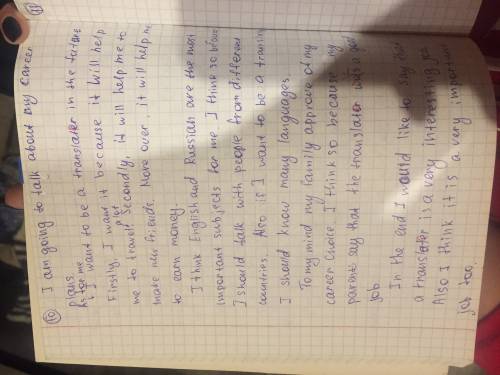 10 I am going to talk about my career
plans.
As for me
I want to be a translater in the future
Firstly, I want it because it will help
me to travel. Secondly, it will help me to
make new friends. More over, it will help me
to earn money.
I think English and Russian are the most
important subjects for me. I think so
I should talk with people from different
countries. Also is I want to be a
I should know many languages.
To my mind my family approve of my
career choice. I think so because my
parents say that the translater is a good
job.
In the end I would like to say that
a translater is a very interesting
Also I think it is a very important
job too.